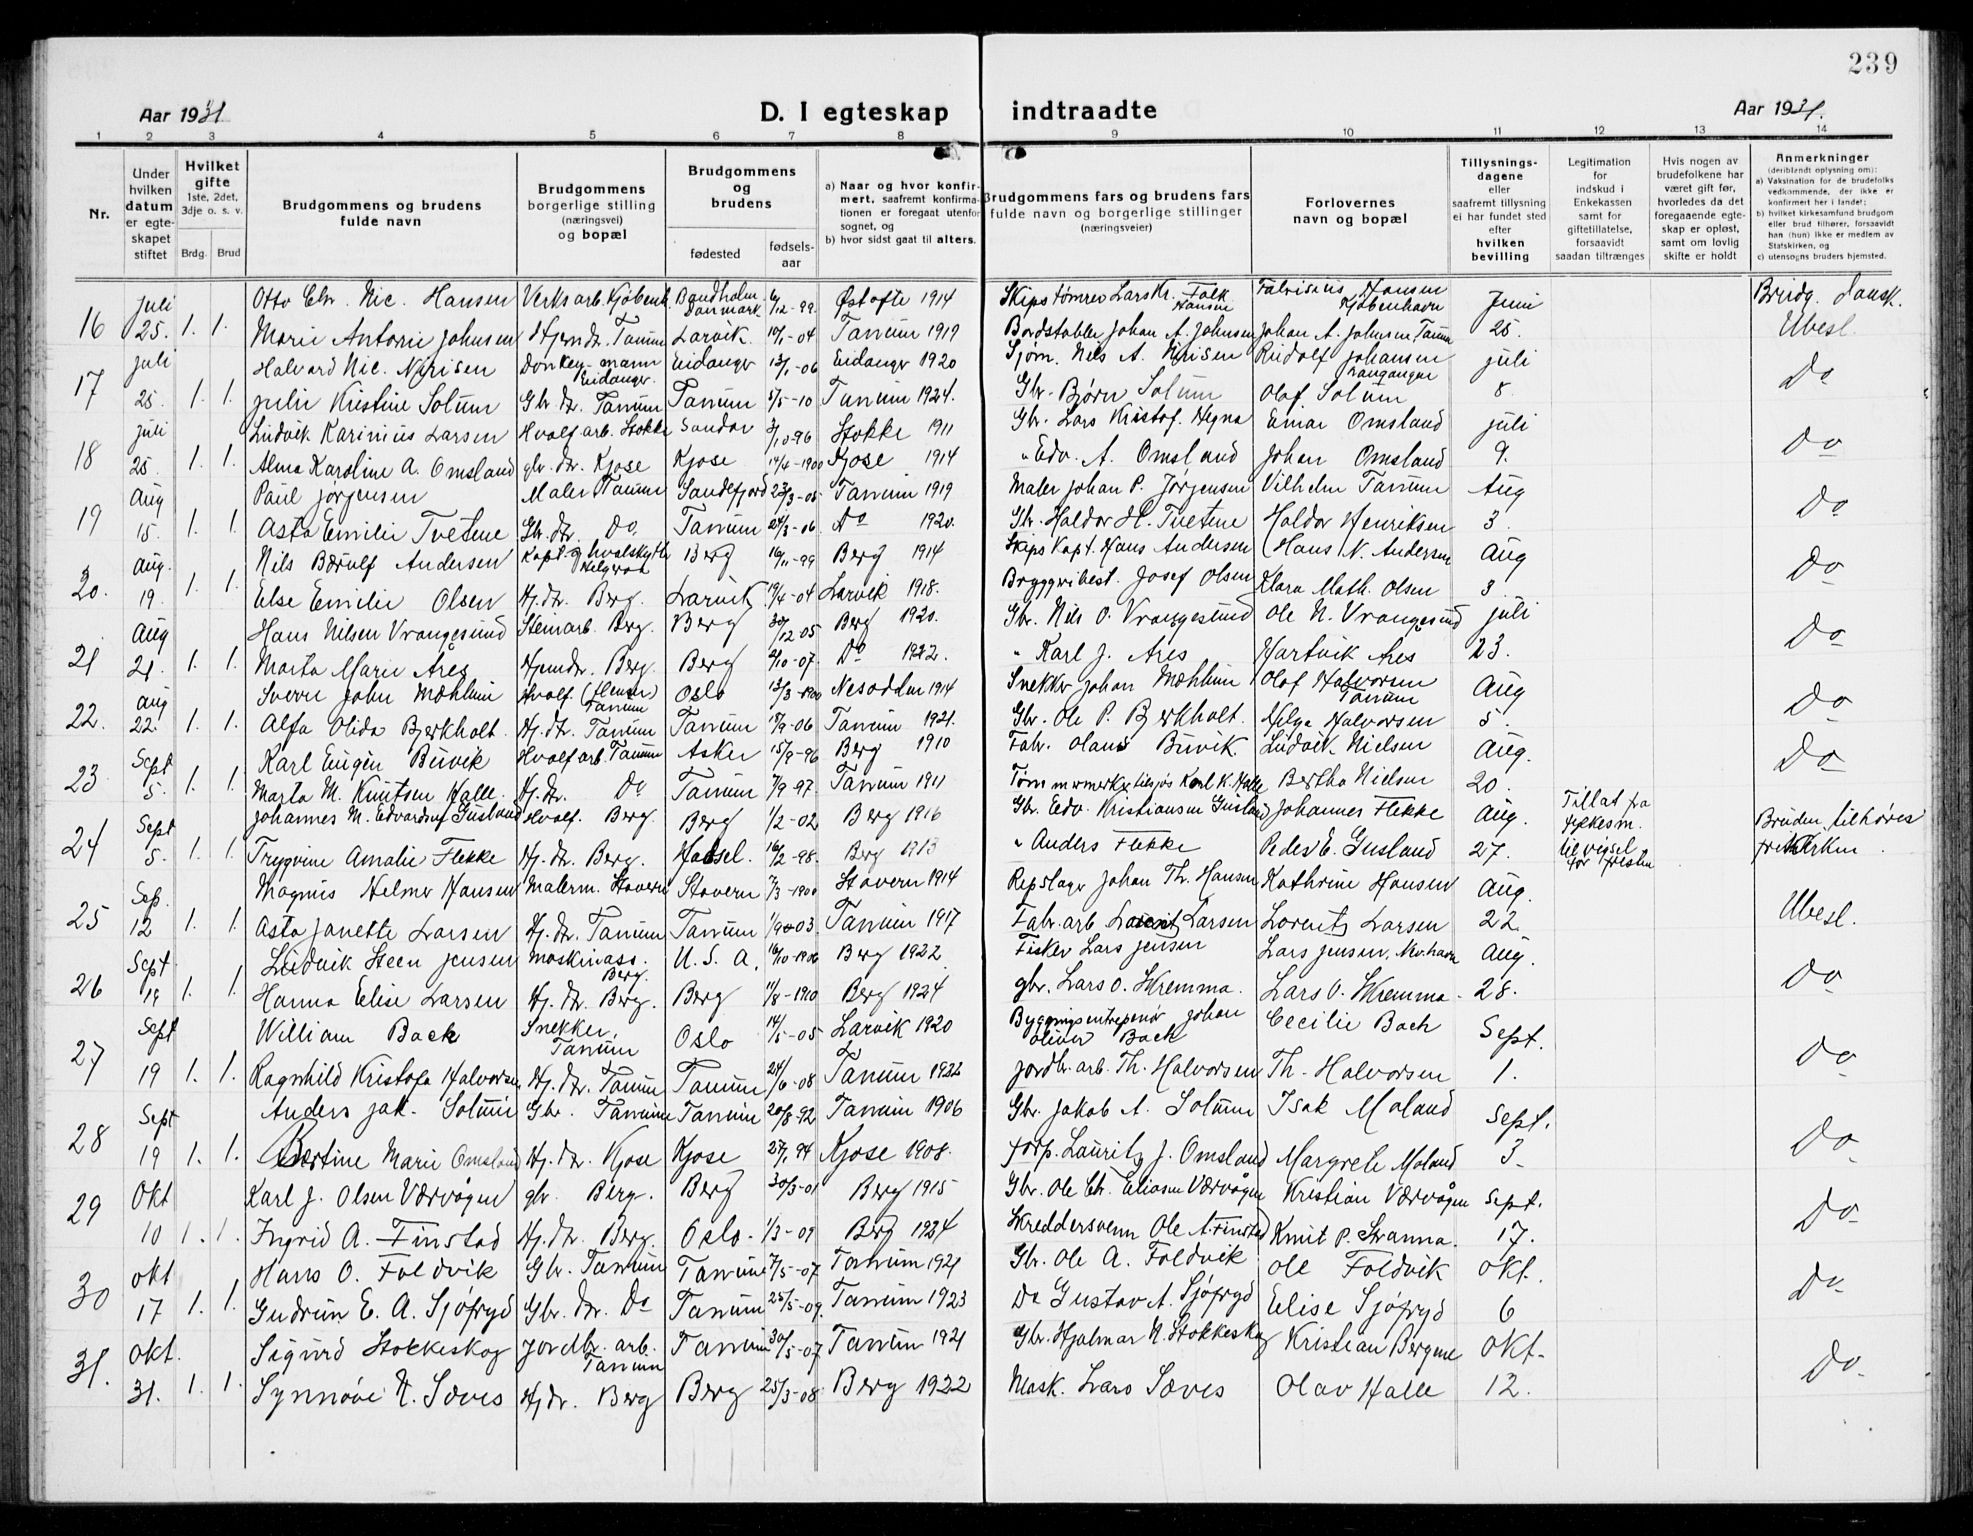 239
Aar 1931
D. I egteskap indtraadte
Aar 1931.
1 2 3 4 5 6 7 8 9 10 11 12 13 14
Nr.
Under hvilken datum er egteskapet stiftet
Hvilket gifte 1ste, 2det, 3dje o. s. v.
Brdg. Brud
Brudgommens og brudens fulde navn
Brudgommens borgerlige stilling (næringsvei) og bopæl
Brudgommens og brudens
fødested
fødselsaar
a) Naar og hvor konfirmert, saafremt konfirmationen er foregaat utenfor sognet, og
b) hvor sidst gaat til alters.
Brudgommens fars og brudens fars fulde navn og borgerlige stillinger (næringsveier)
Forlovernes navn og bopæl
Tillysningsdagene eller saafremt tillysning ei har fundet sted efter hvilken bevilling
Legitimation for indskud i Enkekassen samt for giftetillatelse, forsaavidt saadan tiltrænges
Hvis nogen av brudefolkene har været gift før, hvorledes da det foregaaende egteskap er opløst, samt om lovlig skifte er holdt
Anmerkninger (deriblandt oplysning om):
a) Vaksination for de brudefolks vedkommende, der ikke er konfirmert her i landet;
b) hvilket kirkesamfund brudgom eller brud tilhører, forsaavidt han (hun) ikke er medlem av Statskirken, og
c) utensogns bruders hjemsted.
16 Juli 25. 1. 1. Otto Chr. Nic. Hansen Verksarb. Kjøbenh. Bandholm Danmark 6/12-99. Østofte 1914 Skipstømrer Lars Kr. Falk Hansen Fabrisius Hansen Kjøbenhavn Juni Brudg. Dansk.
Marie Antonie Johnsen Hjemdr. Tanum Larvik. 10/1-04 Tanum 1919 Bordstabler Johan A. Johnsen Johan A. Johnsen Tanum 25. Ubesl.
17 Juli 25. 1. 1. Halvard Nic. Nirisen Donkeymann Eidanger. Eidanger 13/1-06 Eidanger 1920 Sjøm. Nels A. Nirisen Rudolf Johansen Langangen juli Do
Julie Kristine Solum Gbr. dr. Tanum Tanum 5/5-10 Tanum 1924. Gbr. Bjørn Solum Olaf Solum 8.
18 juli 25 1. 1. Ludvik Karinius Larsen Hvalf arb. Stokke Sandar 3/10-96 Stokke 1911 Gbr. Lars Kristof. Hegna Einar Omsland juli Do
Alma Karoline A. Omsland gbr. dr. Kjose Kjose 14/4-1900 Kjose 1914 " Edv. A. Omsland Johan Omsland 9.
19 Aug 15. 1. 1. Paul Jørgensen Maler Tanum Sandefjord 23/3-05 Tanum 1919 Maler Johan P. Jørgensen Vilhelm Tanum Aug Do
Asta Emilie Tvetene Gbr. dr. Do. Tanum 24/3-06 Do 1920. Gbr. Haldor H. Tvetene Haldor Henriksen 3.
20. Aug. 19. 1. 1. Nils Bærulf Andersen Kapt. og hvalskytter Helgeroa Berg 16/11-99 Berg 1914 Skips Kapt. Hans Andersen Hans N. Andersen Aug Do
Else Emilie Olsen Hj. dr. Berg. Larvik 19/4-04 Larvik 1918. Bryggeribest. Josef Olsen Klara Math. Olsen 3
21 Aug 21. 1. 1. Hans Nilsen Vrangesund Stenarb. Berg. Berg 30/12-05 Berg 1920. Gbr. Nils O. Vrangesund Ole N. Vrangesund juli Do
Marta Marie Åres Hjemdr. Berg. Berg 2/10-07. Do 1922. " Karl J. Ares Hartvik Ares 23.
22. Aug 22. 1. 1. Sverre John Mæhlum Hvalf. Tanum Oslo 13/3-1900 Nesodden 1914 Snekker Johan Mæhlum Olaf Halvorsen Tanum Aug Do
Alfa Olida Bjerkholt. Hj. dr. Tanum Tanum 17/9-06 Tanum 1921. Gbr. Ole P. Bjerkholt. Helga Halvorsen 5.
23 Sept 5. 1. 1. Karl Eugen Buvik Hvalfarb. Tanum Asker 15/9-96 Berg 1910 Fabr. Olaus Buvik. Ludvik Nielsen Aug. Do
Marta M. Knutsen Halle. Hj. dr. Do Tanum 7/9-97. Tanum 1911 Karl K. Halle Bertha Nielsen 20.
24 Sept 5. 1. 1. Johannes M. Edvardsen Gusland Hvalf. Berg. Berg 1/2-02 Berg 1916 Gbr. Edv. Kristiansen Gusland Johannes Flekke Aug. Tillat fra fylkesm. til vigsel før fristen Bruden tilhører frikirken.
Trygvine Amalie Flekke Hj. dr. Berg. Hassel. 16/2-98. Berg 1913 " Anders Flekke Peder E. Gusland 27.
25 Sep. 12 1. 1. Magnus Helmer Hansen Malerm. Stavern Stavern 7/3-1900 Stavern 1914 Repslager Johan Th. Hansen Kathrine Hansen Aug. Ubesl.
Asta Janette Larsen Hj. dr. Tanum Tanum 1/9-03. Tanum 1917 Fabr. arb. Lorents Larsen Lorents Larsen 22.
26 Sept. 19 1. 1. Ludvik Steen Jensen Maskinass. Berg. U. S. A. 16/10-1906 Berg 1922 Fisker Lars Jensen Lars Jensen, Nevlhavn Aug. Do
Hanna Elise Larsen Hj. dr. Berg. Berg 11/8-1910 Berg 1924 gbr. Lars O. Skremma. Lars O. Skremma. 28.
27 Sept 19 1. 1. William Back Snekker, Tanum Oslo 14/5-05 Larvik 1920 Bygningsentreprenør Johan Oliver Back Cecilie Bach Sept. Do
Ragnhild Kristofa Halvorsen Hj. dr. Tanum Tanum 24/6-08 Tanum 1922 Jordbr. arb. Th. Halvorsen Th. Halvorsen 1.
28 Sept 19 1. 1. Anders Jak. Solum Gbr. Tanum Tanum 20/8-92 Tanum 1906 Gbr. Jakob A. Solum Isak Moland Sept. Do
Bertine Marie Omsland Hj. dr. Kjose Kjose 27/1 94 Kjose 1908. Forp. Lauritz J. Omsland Margrete Moland 3.
29 Okt 10 1. 1. Karl J. Olsen Værvågen gbr. Berg. Berg 30/3-01 Berg 1915 Gbr. Ole Chr. Eliasen Værvågen Kristian Værvågen Sept. Do
Ingrid A. Finstad Hj. dr. Berg. Oslo. 1/3-09 Berg 1924 Skreddersvenn Ole A. Finstad Knut P. Stranna. 17.
30 Okt 17 1. 1. Hans O. Foldvik Gbr. Tanum Tanum 7/5-07 Tanum 1921 Gbr. Ole A. Foldvik Ole Foldvik Okt. Do
Gudrun E. A. Sjøfryd Gbr. dr. Do Tanum 25/5-09. Tanum 1923 Do Gustav A. Sjøfryd Elise Sjøfryd 6
31. Okt. 31. 1. 1. Sigurd Stokkeskog Jordbr. arb. Tanum Tanum 30/5-07 Tanum 1921 Gbr. Hjalmar N. Stokkeskog Kristian Bergene Okt. Do
Synnøve N. Sæves Hj dr. Berg Berg 25/3-08 Berg 1922 Mask. Lars Sæves Olav Halle 12.